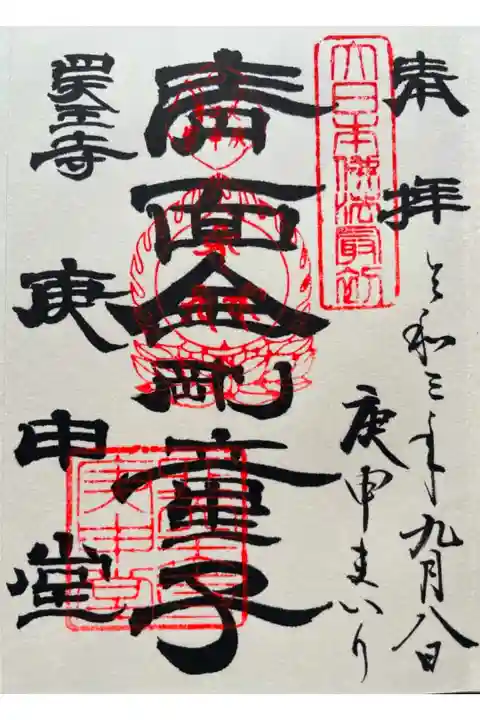 奉拝
令和三年九月八日
庚申まいり
大日本佛法最初
青面金剛童子
四天王寺
庚申堂